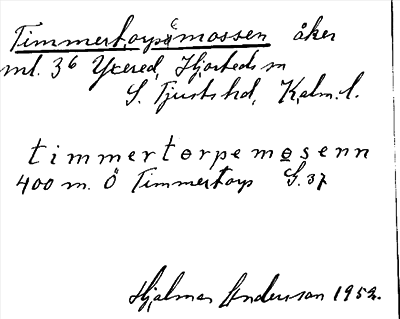 Timmertorpsmossen åker
ml. 3⁶ Yxered, Hjorteds sn
S. Tjusts hd, Kalm. l.
timmertorpemosenn
400 m. Ö Timmertorp S. 37
Hjalmar Andersson 1952.